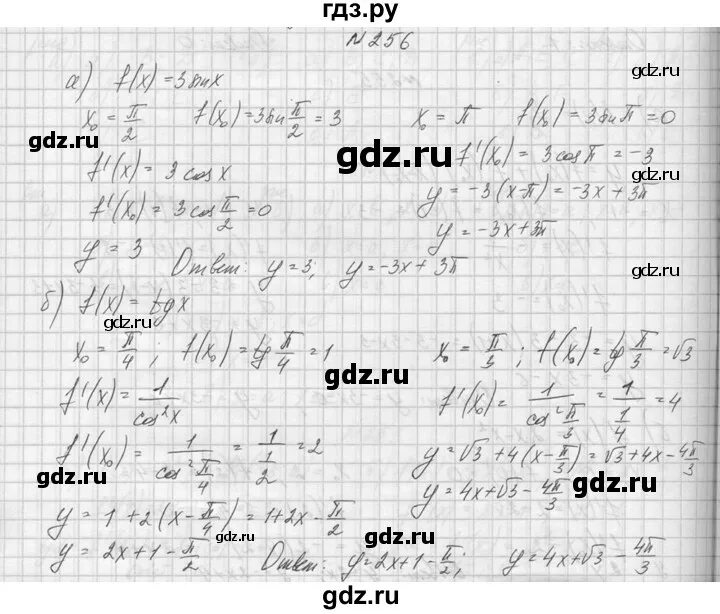 гдз.ру
№256
а) f(x) = 3sinx
x₀ = π/2   f(x₀) = 3sin π/2 = 3   x₀ = π   f(x₀) = 3sinπ = 0
f'(x) = 3cosx   f'(x₀) = 3cosπ = -3
f'(x₀) = 3cos π/2 = 0   y = -3(x-π) = -3x + 3π
y = 3   y = -3x+3π
Ответ: y = 3; y = -3x + 3π
б) f(x) = tgx
x₀ = π/4; f(x₀) = tg π/4 = 1   x₀ = π/3; f(x₀) = tg π/3 = √3
f'(x) = 1/cos²x   f'(x₀) = 1/cos² π/3 = 1/(1/4) = 4
f'(x₀) = 1/cos² π/4 = 1/(1/2) = 2   y = √3 + 4(x - π/3) = √3 + 4x - 4π/3
y = 4x+√3 - 4π/3
y = 1 + 2(x - π/4) = 1+2x - π/2
y = 2x+1 - π/2   Ответ: y = 2x+1 - π/2; y = 4x+√3 - 4π/3
gdz.ru
gdz.ru
gdz.ru
gdz.ru
gdz.ru
gdz.ru
gdz.ru
gdz.ru
gdz.ru
gdz.ru
gdz.ru
gdz.ru
gdz.ru